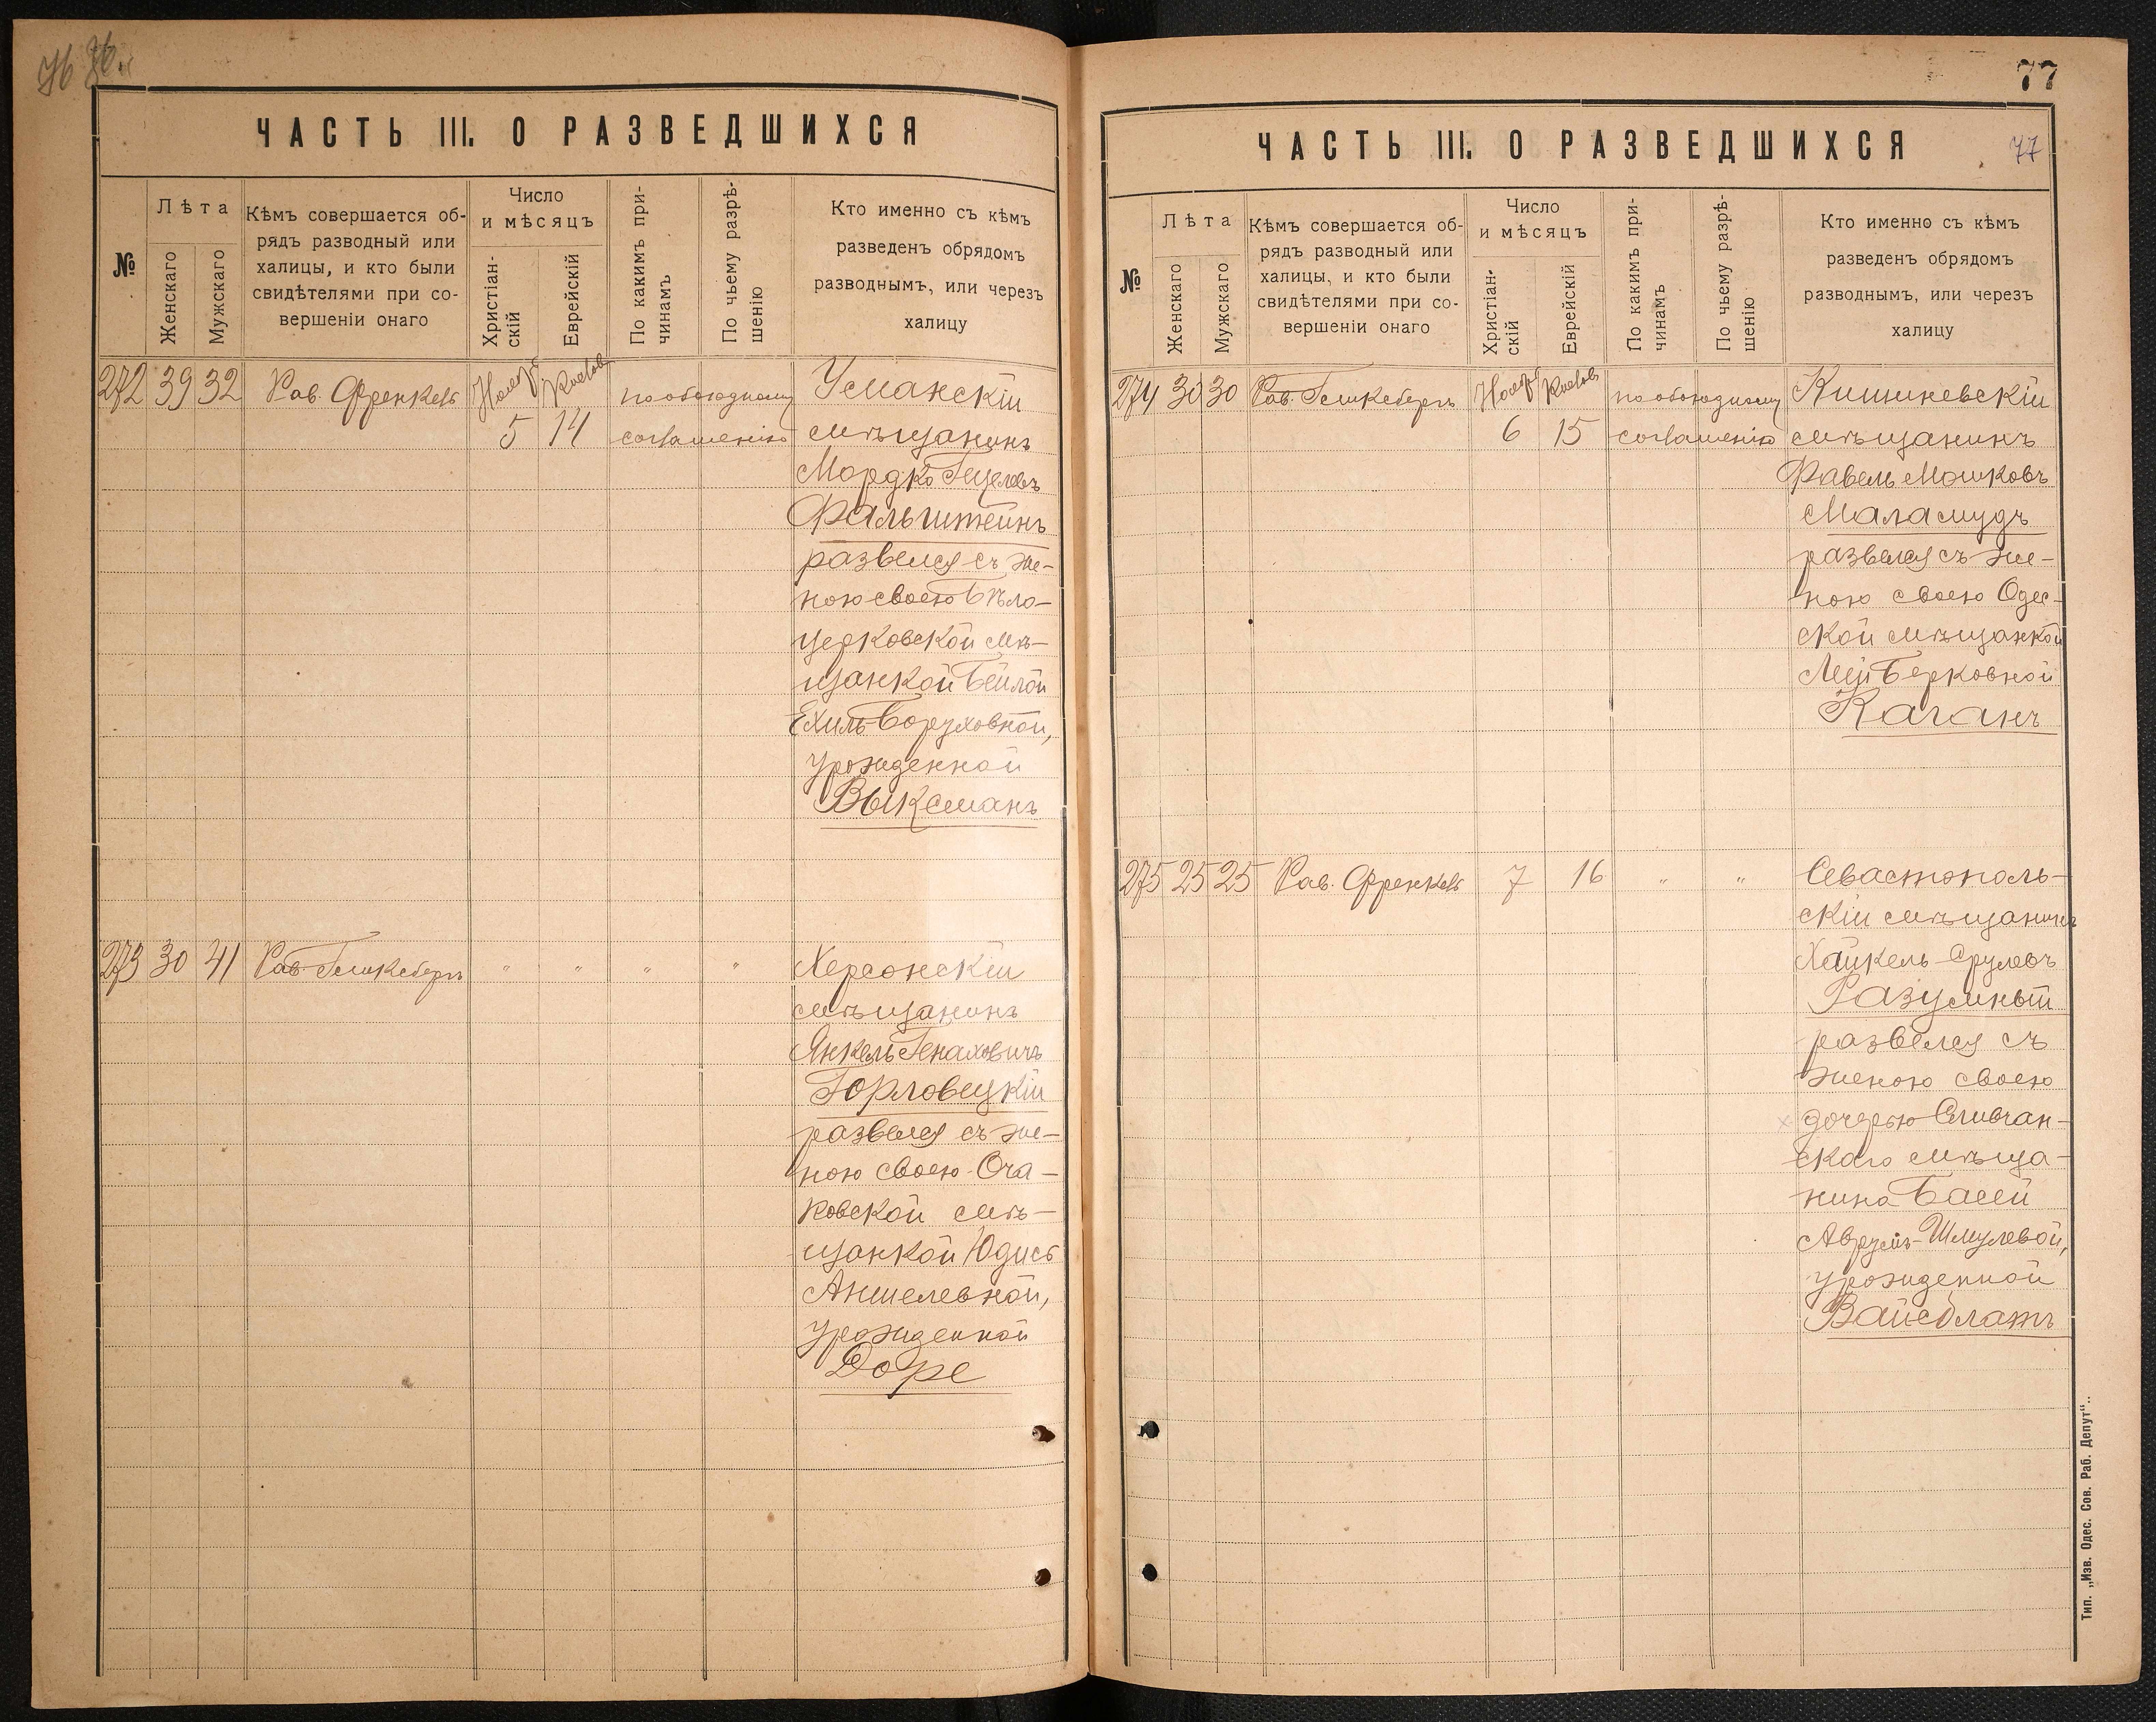 76 76.
ЧАСТЬ III. О РАЗВЕДШИХСЯ
№
Лѣта
Женскаго
Мужскаго
Кѣмъ совершается об-
рядъ разводный или
халицы, и кто были
свидѣтелями при со-
вершеніи онаго
Число
и мѣсяцъ
Христіан-
скій
Еврейскій
По какимъ при-
чинамъ
По чьему разрѣ-
шенію
Кто именно съ кѣмъ
разведенъ обрядомъ
разводнымъ, или черезъ
халицу
272 39 32 Рав. Френкель Нояб. Кислев. по обоюдному Уманскій
5 14 соглашенію мѣщанинъ
Мордко Гецелевъ
Фальштейнъ
развелся съ же-
ною своею Бѣло-
церковской мѣ-
щанкой Бейлой
Ехиль-Боруховной,
урожденной
Выксманъ
273 30 41 Рав. " " " " Херсонскій
мѣщанинъ
Янкель Генаховичъ
Горловецкій
развелся съ же-
ною своею Оча-
ковской мѣ-
щанкой Юдись
Аншелевной,
урожденной
Доре
77
ЧАСТЬ III. О РАЗВЕДШИХСЯ
77
№
Лѣта
Женскаго
Мужскаго
Кѣмъ совершается об-
рядъ разводный или
халицы, и кто были
свидѣтелями при со-
вершеніи онаго
Число
и мѣсяцъ
Христіан-
скій
Еврейскій
По какимъ при-
чинамъ
По чьему разрѣ-
шенію
Кто именно съ кѣмъ
разведенъ обрядомъ
разводнымъ, или черезъ
халицу
274 30 30 Рав. Нояб. Кислев. по обоюдному Кишиневскій
6 15 соглашенію мѣщанинъ
Фавель Мошковъ
Маламудъ
развелся съ же-
ною своею Одес-
ской мѣщанкой
Леей Берковной
Каганъ
275 25 25 Рав. Френкель 7 16 " " Севастополь-
скій мѣщанинъ
Хайкель Срулевъ
Разумный
развелся съ
женою своею
дочерью
скаго мѣща-
нина Басей
Аврумъ-Шмулевой,
урожденной
Вайсблатъ
Тип. „Изв. Одес. Сов. Раб. Депут“.